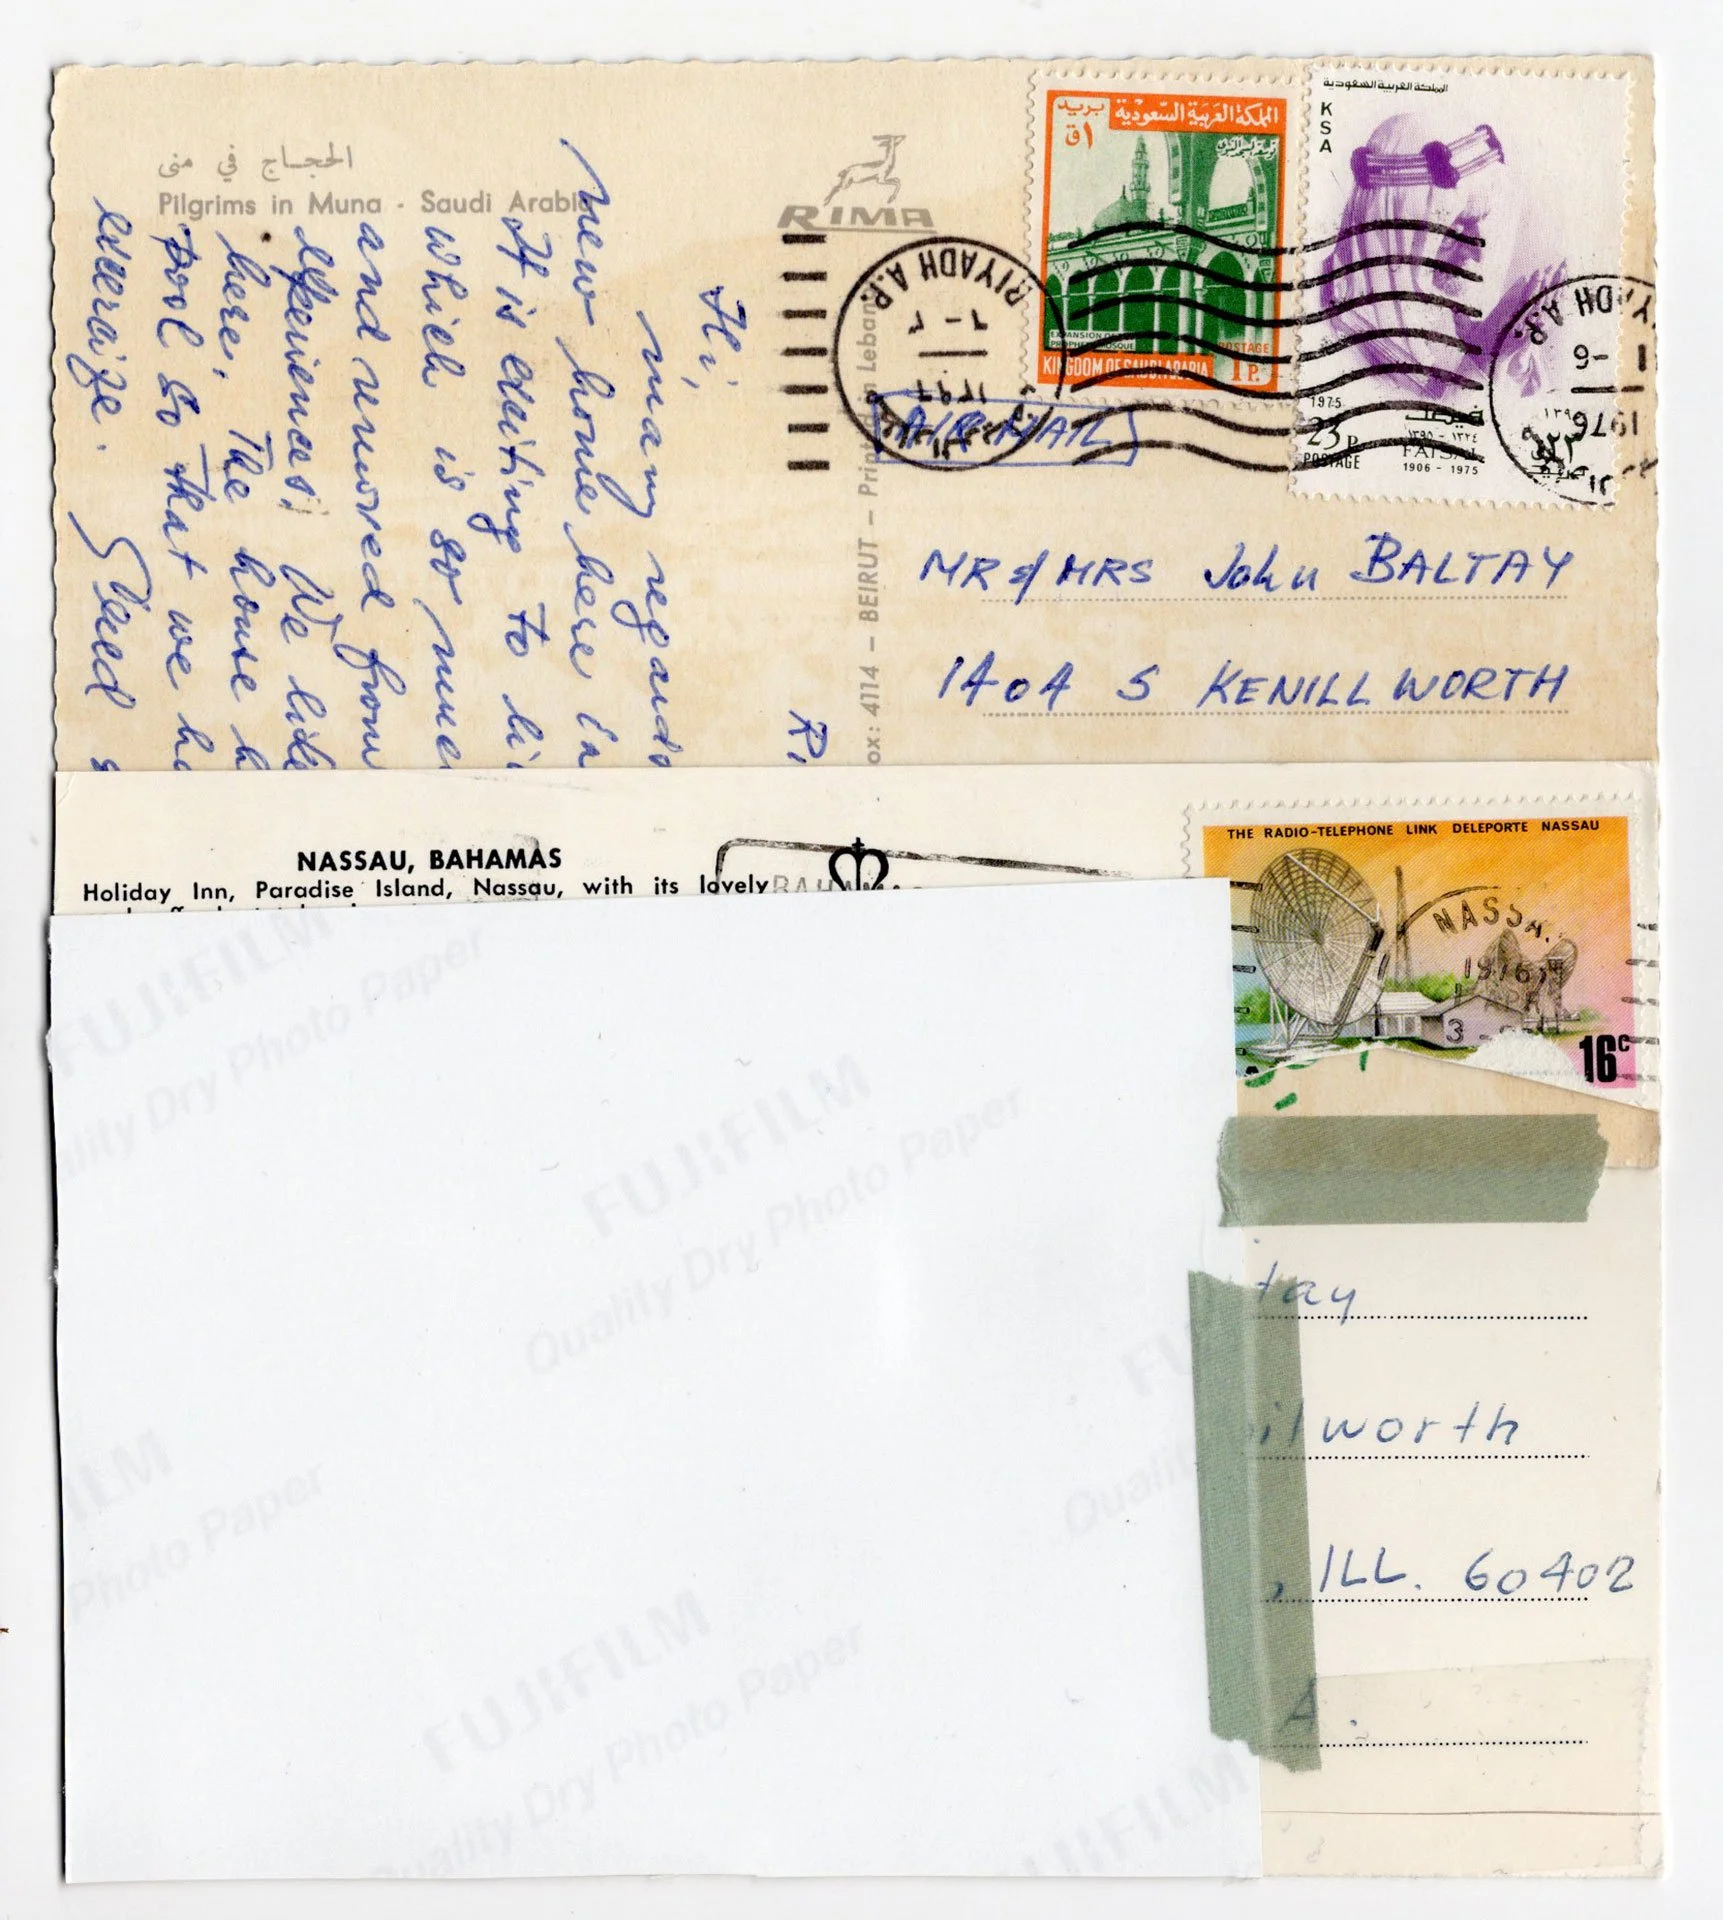 الحجاج في منى
Pilgrims in Muna - Saudi Arabia
RIMA
Hi,
many regards
new home here in
It is exciting to li
which is so
and
experiences. We like
here. The house h
Pool so that we ha
exercize. Speed
R.
ox: 4114 – BEIRUT – Printed in Lebanon
AIR MAIL
المملكة العربية السعودية
بريد
١ق
EXPANSION OF
PROPHET MOSQUE
POSTAGE
KINGDOM OF SAUDI ARABIA
1 P.
المملكة العربية السعودية
KSA
1975
23 P
POSTAGE
فيصل
١٣٢٤ - ١٣٩٥
FAISAL
1906 - 1975
RIYADH A.P.
RIYADH A.P.
1 -6
1976
MR & MRS John BALTAY
1404 S KENILLWORTH
NASSAU, BAHAMAS
Holiday Inn, Paradise Island, Nassau, with its lovely
BAHAMAS
THE RADIO-TELEPHONE LINK DELEPORTE NASSAU
NASSAU
1976
APR
3
16c
tay
ilworth
, ILL. 60402
A.
FUJIFILM
Quality Dry Photo Paper
FUJIFILM
Quality Dry Photo Paper
FUJIFILM
Quality Dry Photo Paper